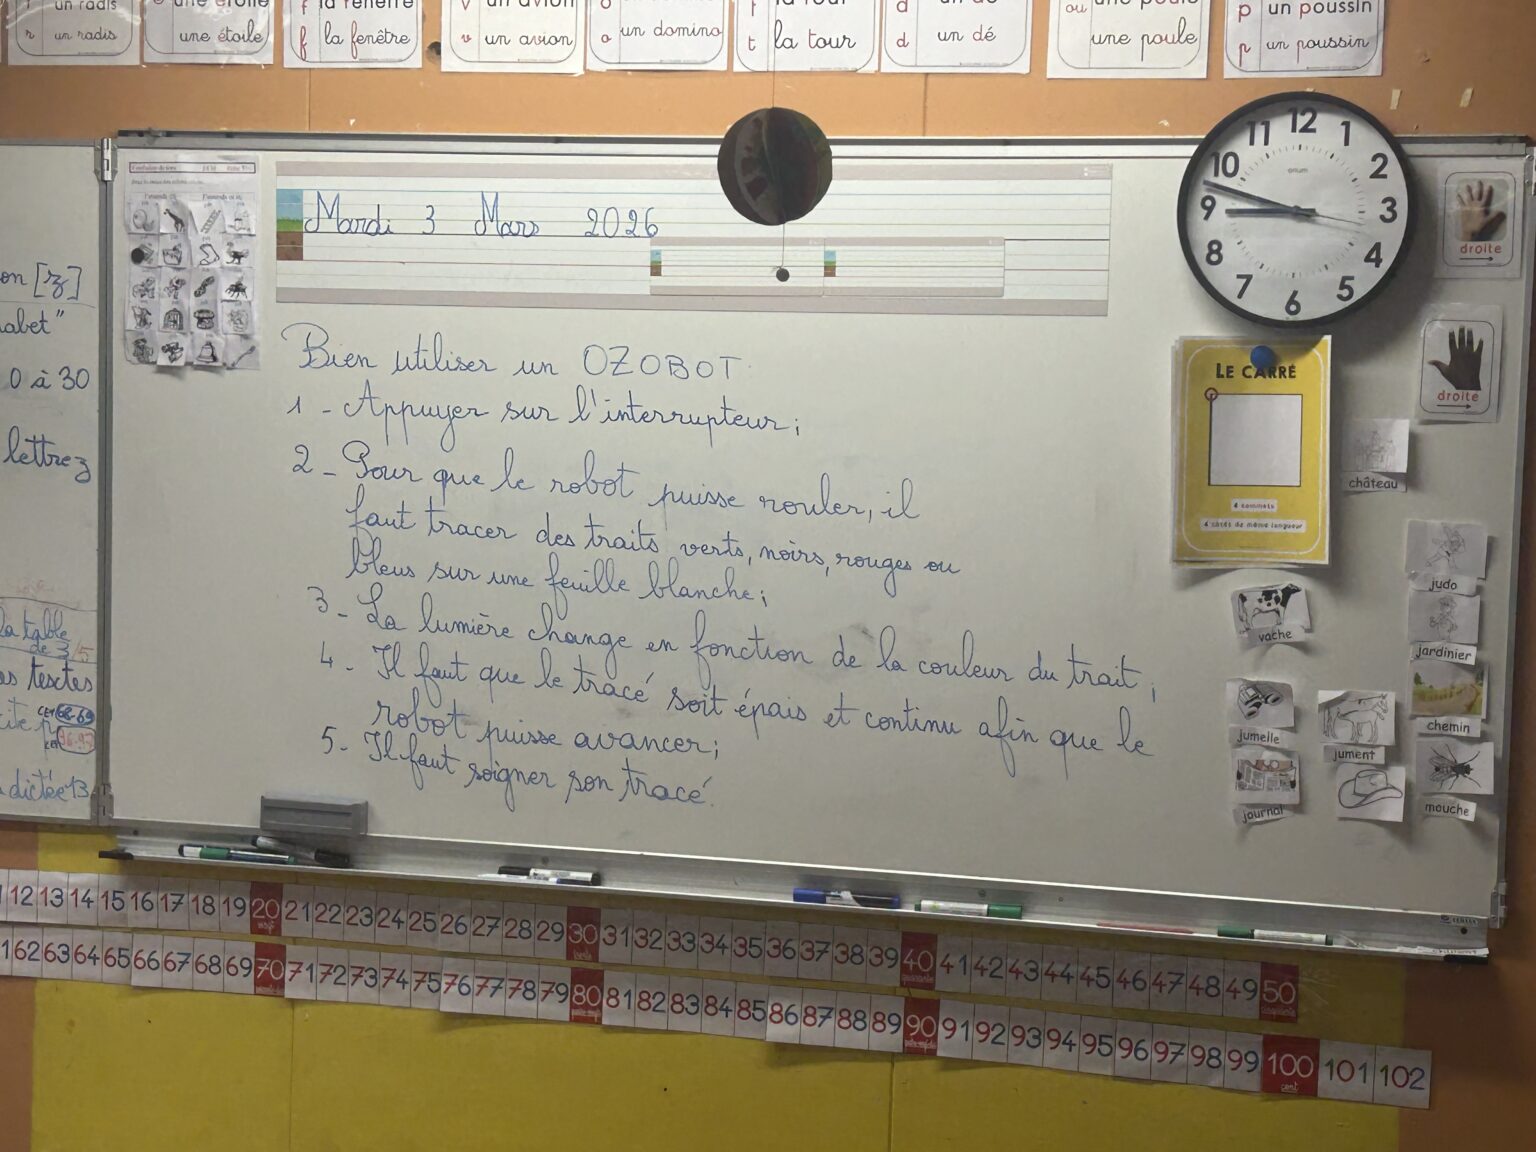 un radis
une étoile
la fenêtre
un avion
un domino
la tour
un dé
une poule
un poussin
r un radis
une étoile
f la fenêtre
v un avion
o un domino
t la tour
d un dé
ou une poule
p un poussin
Mardi 3 Mars 2026
Bien utiliser un OZOBOT.
1 - Appuyer sur l'interrupteur;
2 - Pour que le robot puisse rouler, il
faut tracer des traits verts, noirs, rouges ou
bleus sur une feuille blanche;
3 - La lumière change en fonction de la couleur du trait;
4 - Il faut que le tracé soit épais et continu afin que le
robot puisse avancer;
5 - Il faut soigner son tracé.
on [z]
abet"
0 à 30
lettrez
la table
de 3/5
textes
68-69
dictée 13
12 1 2 3 4 5 6 7 8 9 10 11
orium
droite
droite
LE CARRÉ
4 sommets
4 côtés de même longueur
château
judo
vache
jardinier
jumelle
jument
chemin
journal
mouche
12 13 14 15 16 17 18 19 20 21 22 23 24 25 26 27 28 29 30 31 32 33 34 35 36 37 38 39 40 41 42 43 44 45 46 47 48 49 50
vingt
62 63 64 65 66 67 68 69 70 71 72 73 74 75 76 77 78 79 80 81 82 83 84 85 86 87 88 89 90 91 92 93 94 95 96 97 98 99 100 101 102
cent